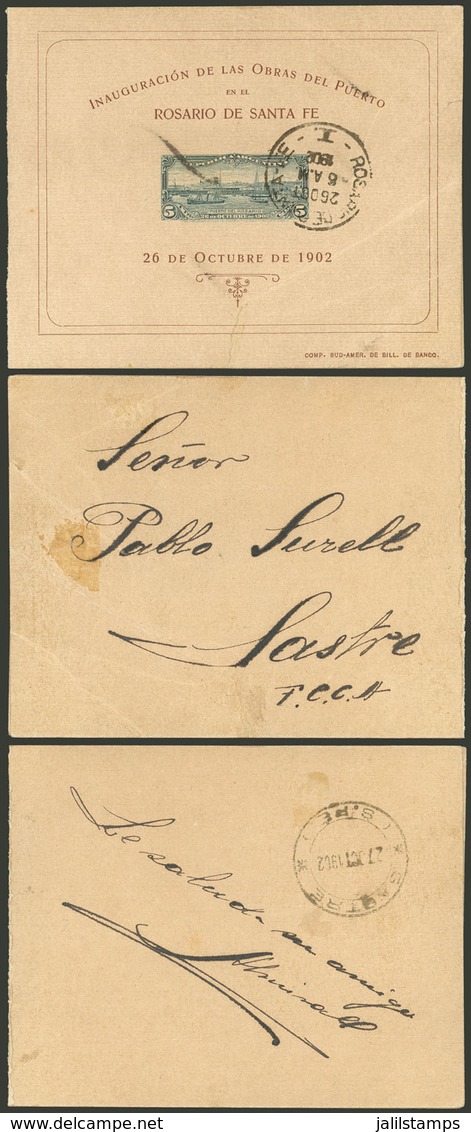 INAUGURACIÓN DE LAS OBRAS DEL PUERTO
EN EL
ROSARIO DE SANTA FE
ROSARIO DE SANTA FE
- I -
26 OCT
5 A.M.
1902
5 5
PUERTO DEL ROSARIO
26 DE OCTUBRE DE 1902
26 DE OCTUBRE DE 1902
COMP. SUD-AMER. DE BILL. DE BANCO.
Señor
Pablo Surell
Sastre
F.C.C.A
Le saluda su amigo
SASTRE
(S. FE)
27 OCT 1902
www.delcampe.net
jalilstamps